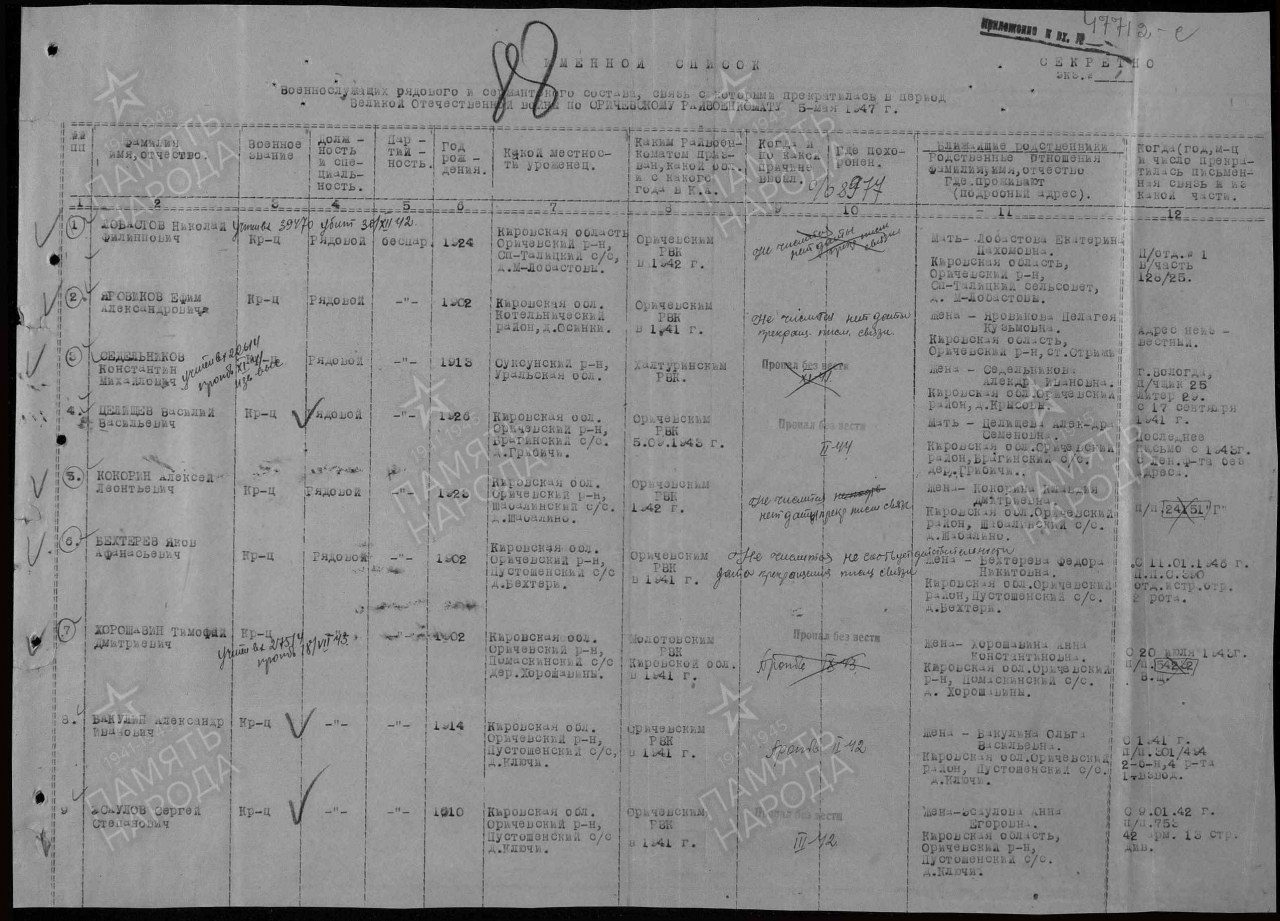 Приложение к вх. №
ИМЕННОЙ СПИСОК
СЕКРЕТНО
экз. № 1
88
Военнослужащих рядового и сержантского состава, связь с которыми прекратилась в период
Великой Отечественной войны по ОРИЧЕВСКОМУ РАЙВОЕНКОМАТУ 5-мая 1947 г.
№№ пп
Фамилия имя, отчество.
Военное звание
Долж-ность и спе-циаль-ность.
Пар-тий-ность.
Год рож-дения.
Какой местнос-ти уроженец.
Каким Райвоен-коматом приз-ван, какой обл. и с какого года в К.А.
Когда и по какой причине выбыл.
Где похо-ронен.
Ближайшие родственники
Родственные отношения
фамилия, имя, отчество
Где проживают
(подробный адрес).
Когда (год, м-ц и число прекра-тилась письмен-ная связь и из какой части.
об 8977
1 2 3 4 5 6 7 8 9 10 11 12
1
ЛОБАСТОВ Николай
Филиппович
учтён вх 39470 убит 30/XII 42
Кр-ц Рядовой беспар. 1924
Кировская область
Оричевский р-н,
Сп-Талицкий с/с,
д. М-Лобастовы.
Оричевским
РВК
в 1942 г.
Не числится
нет даты
Мать- Лобастова Екатерина
Пахомовна.
Кировская область,
Оричевский р-н,
Сп-Талицкий сельсовет,
д. М-Лобастовы.
П/отд. № 1
В/часть
126/25.
2.
ЯРОВИКОВ Ефим
Александрович
Кр-ц Рядовой -"- 1902
Кировская обл.
Котельнический
район, д. Осинки.
Оричевским
РВК
в 1941 г.
Не числится нет даты
прекращ. писм. связи
Жена - Яровикова Пелагея
Кузьмовна.
Кировская область,
Оричевский р-н, ст. Стрижи
Адрес неиз -
вестный.
3
СЕДЕЛЬНИКОВ
Константин
Михайлович
Рядовой -"- 1913
Суксунский р-н,
Уральская обл.
Халтуринским
РВК.
Пропал без вести
XI-41
Жена - Седельникова
Алекдр Ивановна.
Кировская обл. Оричевский
район,
г. Вологда,
п/ящик 25
литер 29.
с 17 сентября
1941 г.
4.
ЦЕЛИЩЕВ Василий
Васильевич
Кр-ц Рядовой -"- 1926
Кировская обл.
Оричевский р-н,
Брагинский с/с.
д. Грибичи.
Оричевским
РВК
1943 г.
Пропал без вести
II-44
Мать - Целищева Алек-дра
Семеновна.
Кировская обл. Оричевский
район, Брагинский с/с.
дер. Грибичи.
Последнее
письмо с 1943г.
с Лен. ф-та без
адреса.
5.
КОКОРИН Алексей
Леонтьевич
Кр-ц Рядовой -"- 1923
Кировская обл.
Оричевский р-н,
Шабалинский с/с.
д. Шабалино.
Оричевским
РВК
1942 г.
Не числится
нет даты прекр писм связи
Жена- Кокорина Клавдия
Дмитриевна.
Кировская обл. Оричевский
район, Шабалинский с/с.
д. Шабалино.
п/п. 24151 "Г"
6.
ВЕХТЕРЕВ Яков
Афанасьевич
Кр-ц Рядовой -"- 1902
Кировская обл.
Оричевский р-н,
Пустошенский с/с
д. Вехтери.
Оричевским
РВК
в 1941 г.
Не числится не соотвует действительности
дата прекращения письм связи
Жена - Вехтерева Федора
Никитовна.
Кировская обл. Оричевский
район, Пустошенский с/с.
д. Вехтери.
С 11.01.1943 г.
П.П.С.390
отд. истр. отр.
2 рота.
7
ХОРОШАВИН Тимофей
Дмитриевич
Кр-ц
учтён вх 27514
пропб 18/VII 43.
-"- 1902
Кировская обл.
Оричевский р-н,
Помаскинский с/с
дер. Хорошавины.
Молотовским
РВК
Кировской обл.
в 1941 г.
Пропал без вести
Пропбв IX-43
Жена- Хорошавина Анна
Константиновна.
Кировская обл. Оричевский
р-н, Помаскинский с/с.
д. Хорошавины.
С 20 июля 1943г.
П/п.
8.
ВАКУЛИН Александр
Иванович
Кр-ц -"- -"- 1914
Кировская обл.
Оричевский р-н,
Пустошенский с/с,
д. Ключи.
Оричевским
РВК
в 1941 г.
пропбв II-42
Жена - Вакулина Ольга
Васильевна.
Кировская обл. Оричевский
район, Пустошенский с/с.
д. Ключи.
С 1941 г.
П/п. 301/494
2-б-н, 4 р-та
1-взвод.
9
ЭСАУЛОВ Сергей
Степанович
Кр-ц -"- -"- 1910
Кировская обл.
Оричевский р-н,
Пустошенский с/с
д. Ключи.
Оричевским
РВК
в 1941 г.
Пропал без вести
III-42
Жена-Эсаулова Анна
Егоровна.
Кировская область,
Оричевский р-н,
Пустошенский с/с.
д. Ключи.
С 9.01.42 г.
п/п. 753
42 арм. 13 стр.
див.
ПАМЯТЬ НАРОДА
1941 1945